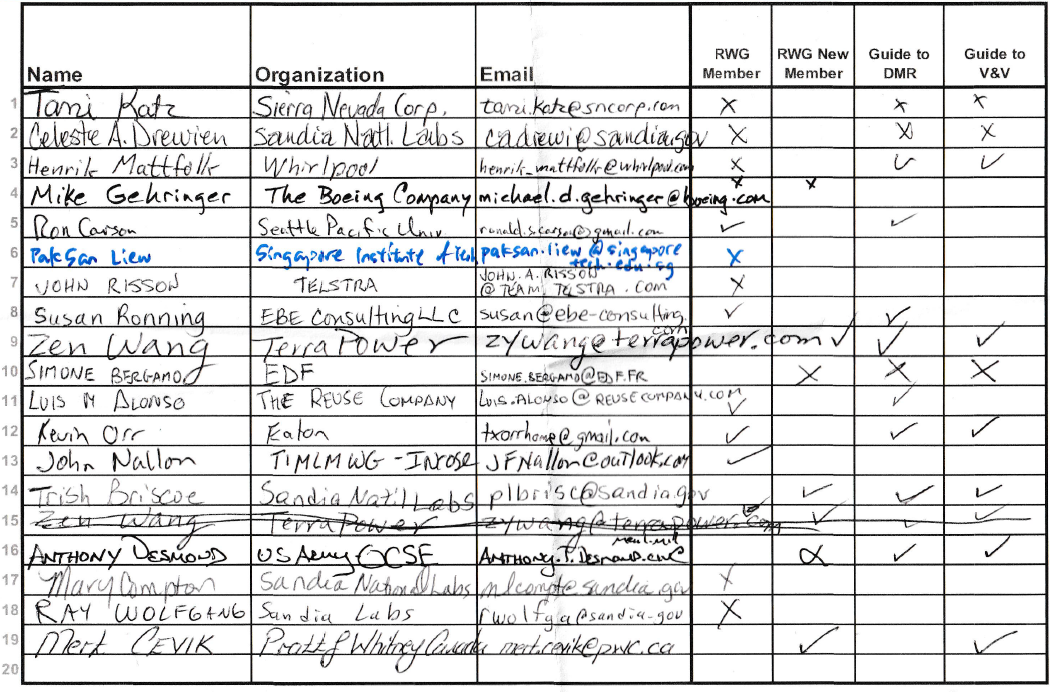 Name Organization Email RWG Member RWG New Member Guide to DMR Guide to V&V
1 Tami Katz Sierra Nevada Corp. tami.katz@sncorp.com X X X
2 Celeste A. Drewien Sandia Natl. Labs cadrewi@sandia.gov X X X
3 Henrik Mattfolk Whirlpool henrik_mattfolk@whirlpool.com X ✓ ✓
4 Mike Gehringer The Boeing Company michael.d.gehringer@boeing.com X X
5 Ron Carson Seattle Pacific Univ. ronald.s.carson@gmail.com ✓ ✓
6 PakSan Liew Singapore Institute of Tech paksan.liew@singaporetech.edu.sg X
7 JOHN RISSON TELSTRA JOHN.A.RISSON@TEAM.TELSTRA.COM X
8 Susan Ronning EBE Consulting LLC susan@ebe-consulting.com ✓ ✓
9 Zen Wang TerraPower zywang@terrapower.com ✓ ✓ ✓
10 SIMONE BERGAMO EDF SIMONE.BERGAMO@EDF.FR X X X
11 LUIS M ALONSO THE REUSE COMPANY LUIS.ALONSO@REUSECOMPANY.COM ✓ ✓
12 Kevin Orr Eaton txorrhome@gmail.com ✓ ✓ ✓
13 John Nallon TIMLM WG - INCOSE JFNallon@outlook.com ✓
14 Trish Briscoe Sandia Nat'l Labs plbrisc@sandia.gov ✓ ✓ ✓
15 Zen Wang TerraPower zywang@terrapower.com ✓ ✓ ✓
16 ANTHONY DESMOND US Army CCSE X ✓ ✓
17 Mary Compton Sandia National Labs mlcompt@sandia.gov X
18 RAY WOLFGANG Sandia Labs rwolfga@sandia.gov X
19 Mert CEVIK Pratt & Whitney Canada mert.cevik@pwc.ca ✓ ✓
20